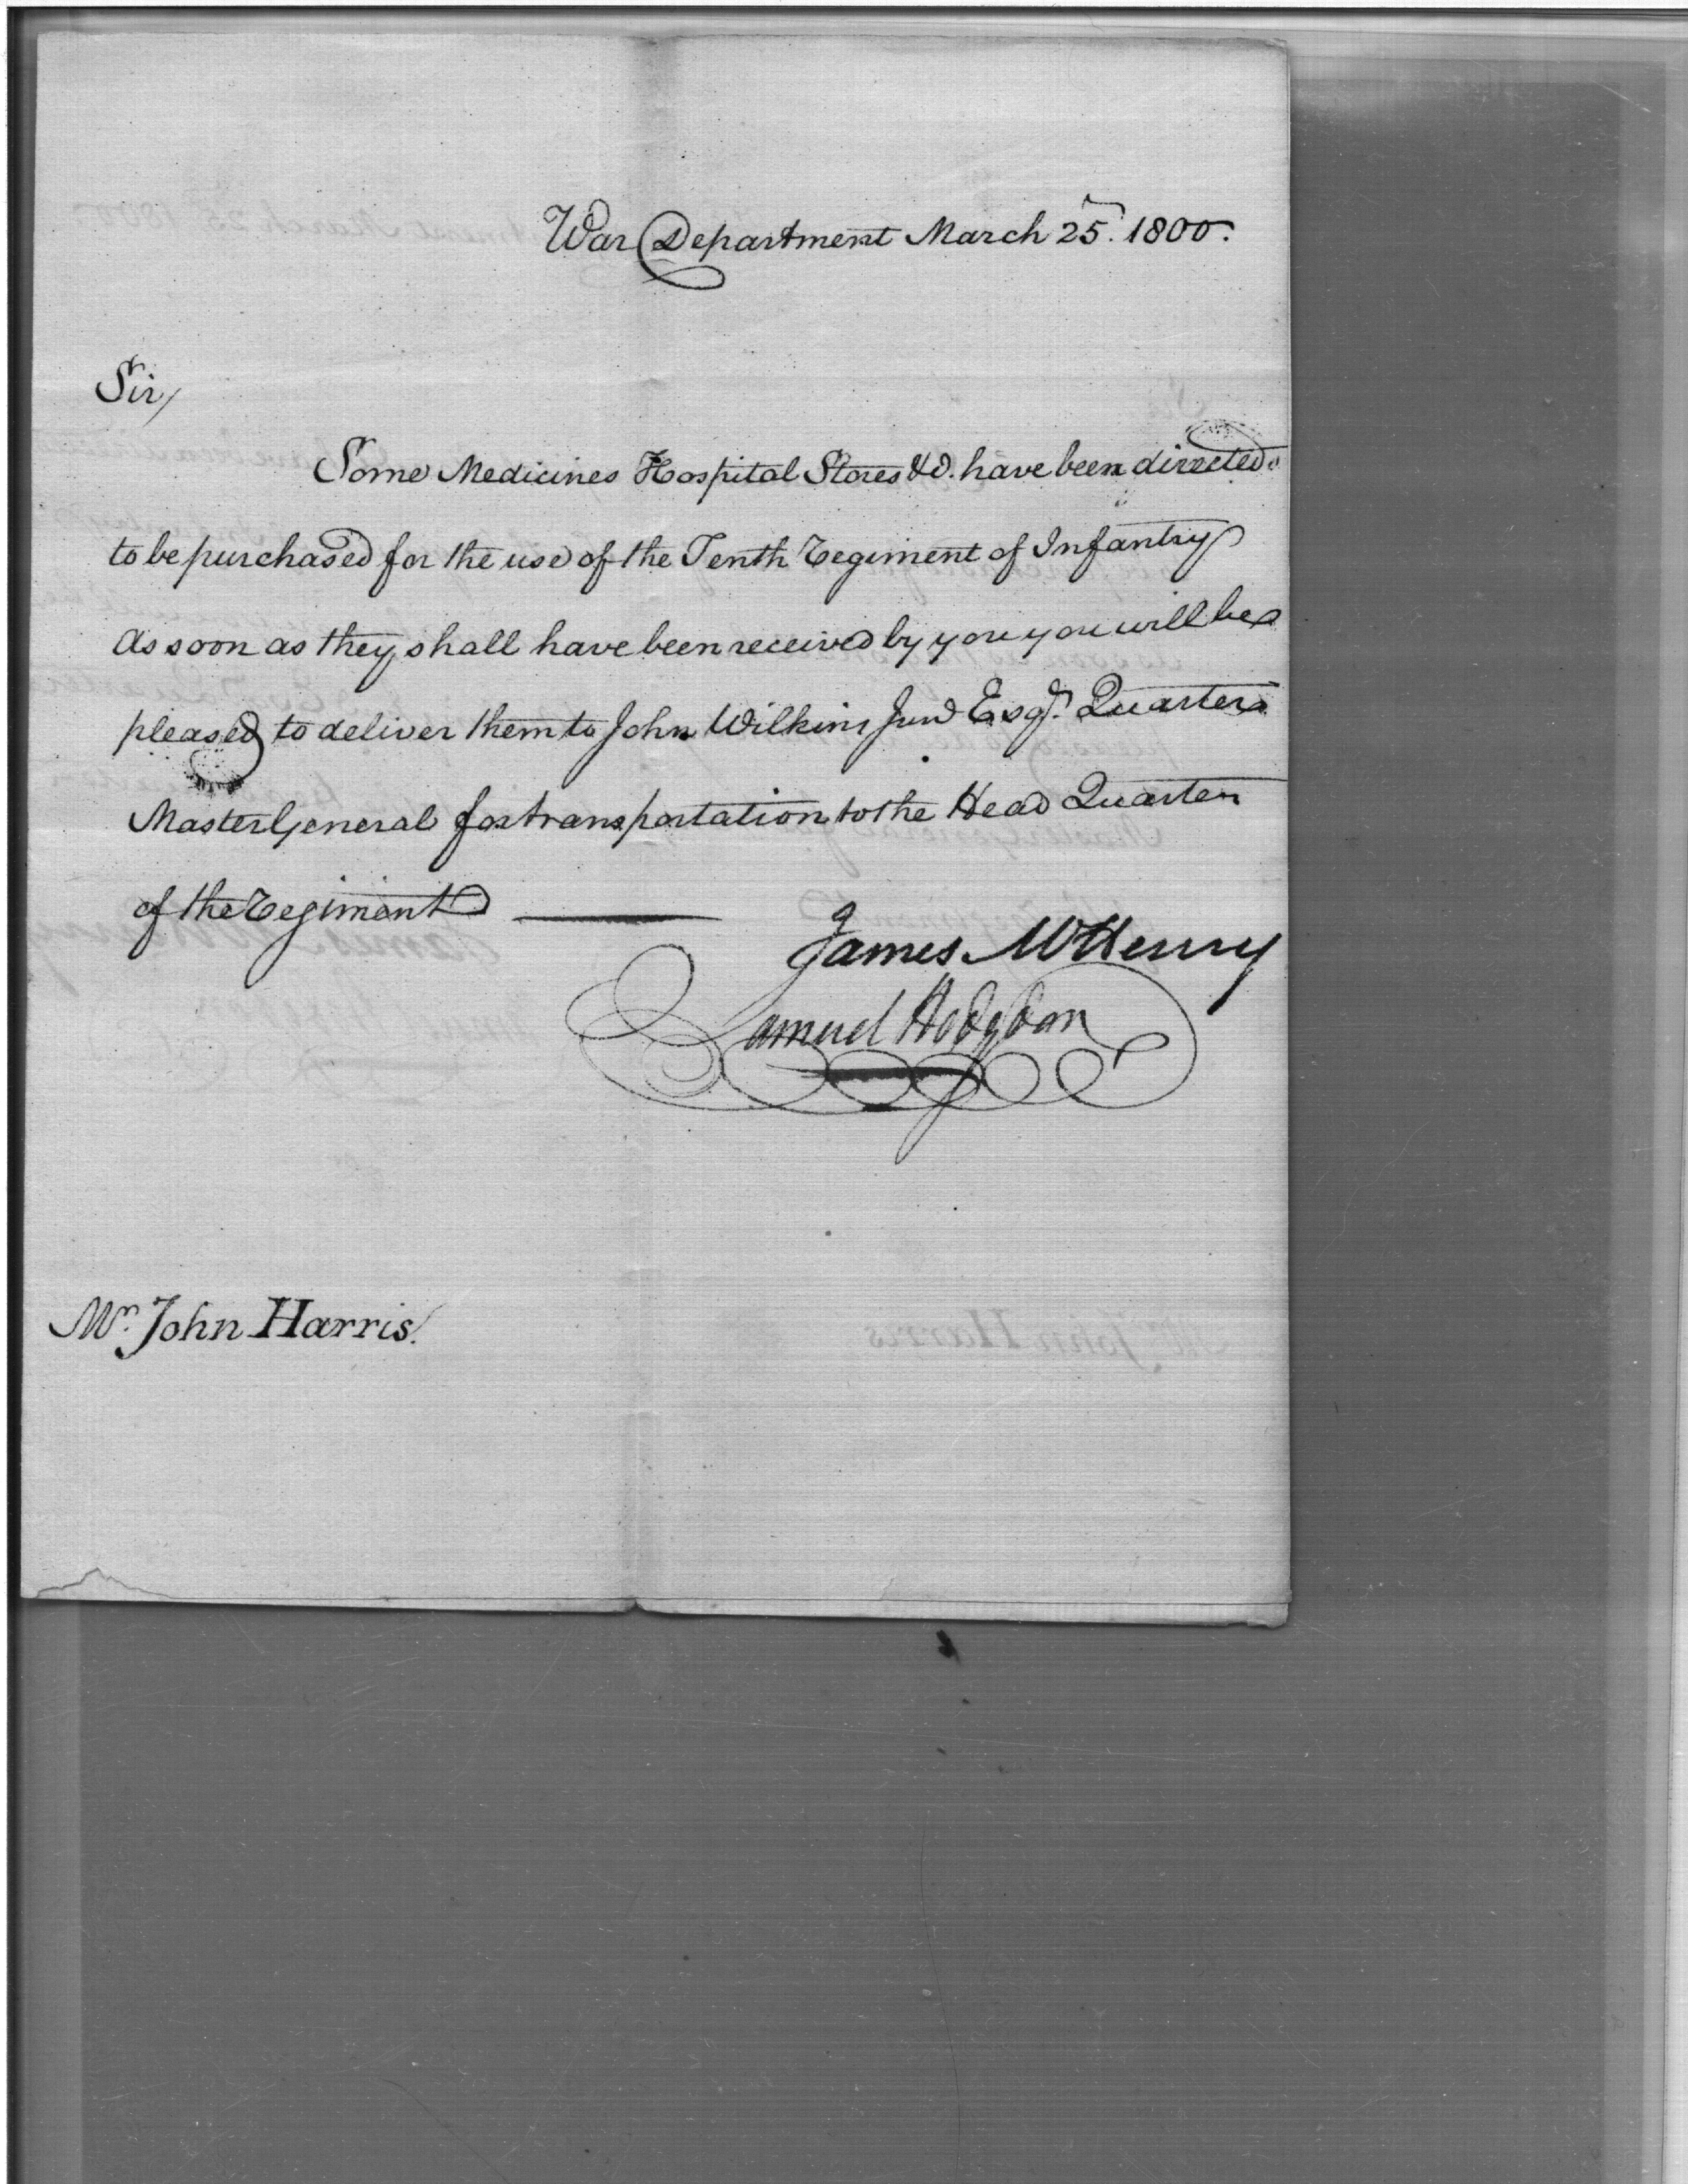 War Department March 25th. 1800.
Sir,
Some Medicines Hospital Stores &c. have been directed
to be purchased for the use of the Tenth Regiment of Infantry
As soon as they shall have been received by you you will be
pleased to deliver them to John Wilkins Junr Esqr. Quarter
Master General for transportation to the Head Quarters
of the Regiment
James McHenry
Samuel Hodgdon
Mr. John Harris.